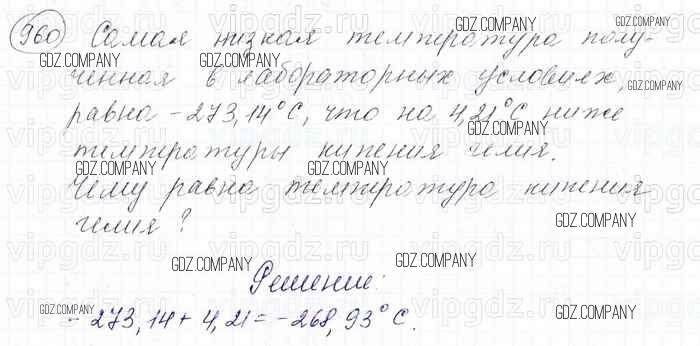 960 Самая низкая температура полу-
ченная в лабораторных условиях,
равна -273,14°С, что на 4,21°С ниже
температуры кипения гелия.
Чему равна температура кипения
гелия?
Решение:
-273,14 + 4,21 = -268,93°С.
GDZ.COMPANY
GDZ.COMPANY
GDZ.COMPANY
GDZ.COMPANY
GDZ.COMPANY
GDZ.COMPANY
GDZ.COMPANY
GDZ.COMPANY
GDZ.COMPANY
GDZ.COMPANY
GDZ.COMPANY
GDZ.COMPANY
vipgdz.ru
vipgdz.ru
vipgdz.ru
vipgdz.ru